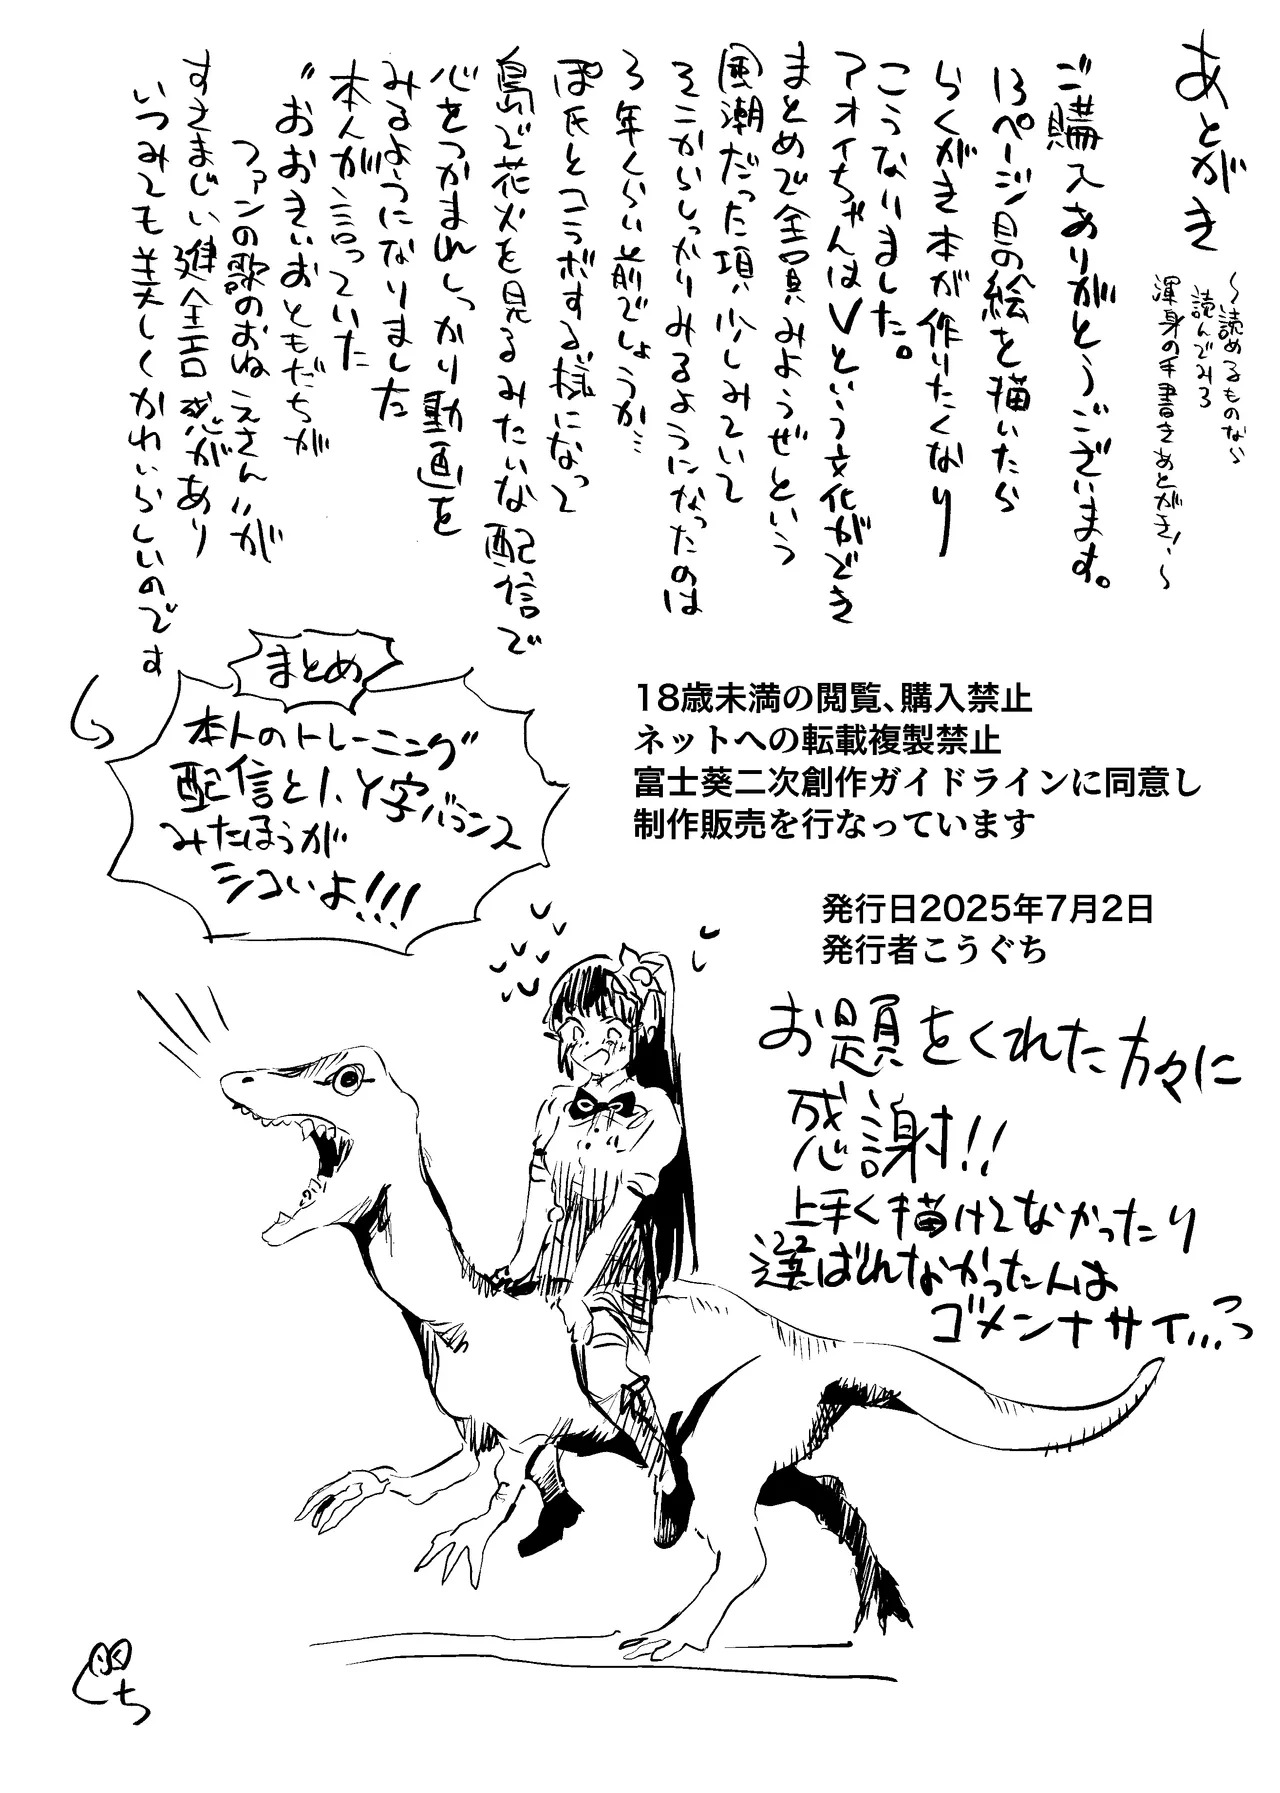 あとがき
〜読めるものなら
読んでみろ
渾身の手書きあとがき!〜
ご購入ありがとうございます。
13ページ目の絵を描いたら
らくがき本が作りたくなり
こうなりました。
アオイちゃんはVという文化ができ
まとめで全員みようぜという
風潮だった頃少しみていて
そこからしっかりみるようになったのは
3年くらい前でしょうか…
ぽ氏とコラボする様になって
島で花火を見るみたいな配信で
心をつかまれしっかり動画を
みるようになりました
本人が言っていた
"おおきいおともだちが
ファンの歌のおねえさん"が
すさまじい健全エロ感があり
いつみても美しくかわいらしいのです
まとめ
本人のトレーニング
配信とI、Y字バランス
みたほうが
シコいよ!!!
18歳未満の閲覧、購入禁止
ネットへの転載複製禁止
富士葵二次創作ガイドラインに同意し
制作販売を行なっています
発行日2025年7月2日
発行者こうぐち
お題をくれた方々に
感謝!!
上手く描けてなかったり
選ばれなかったんは
ゴメンナサイ...っ